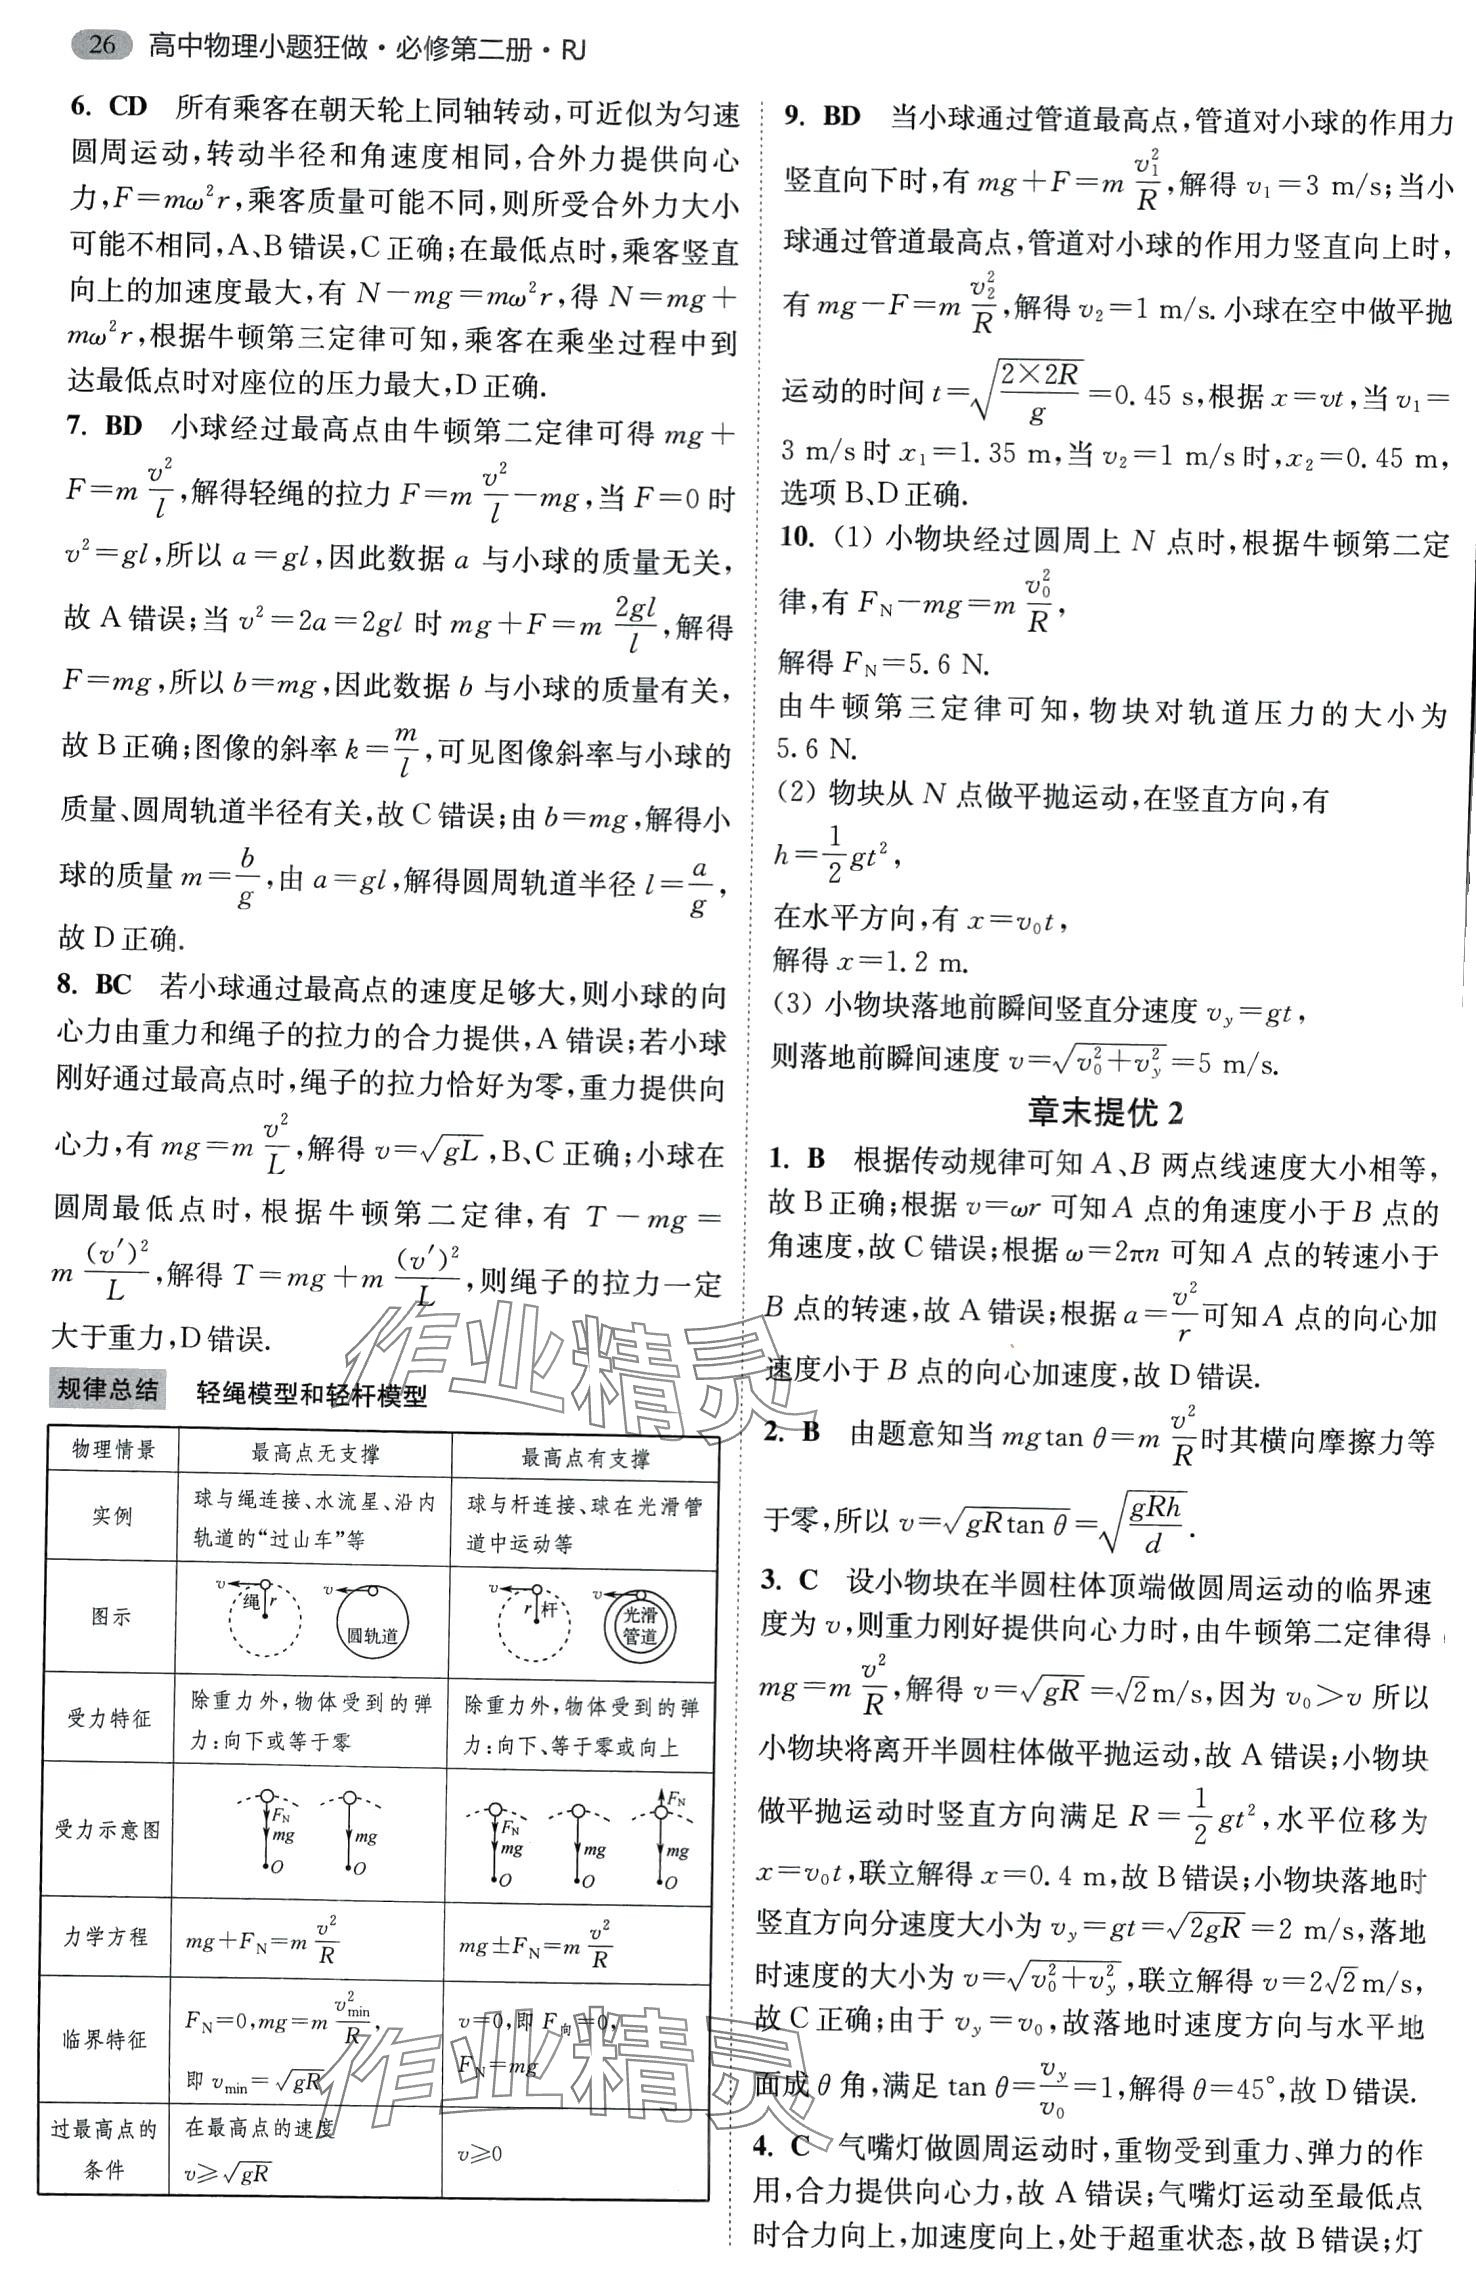 26 高中物理小题狂做·必修第二册·RJ
6. CD 所有乘客在朝天轮上同轴转动,可近似为匀速
圆周运动,转动半径和角速度相同,合外力提供向心
力,F=mω²r,乘客质量可能不同,则所受合外力大小
可能不相同,A、B错误,C正确;在最低点时,乘客竖直
向上的加速度最大,有 N-mg=mω²r,得 N=mg+
mω²r,根据牛顿第三定律可知,乘客在乘坐过程中到
达最低点时对座位的压力最大,D正确.
7. BD 小球经过最高点由牛顿第二定律可得 mg+
F=m v²/l,解得轻绳的拉力 F=m v²/l-mg,当 F=0时
v²=gl,所以 a=gl,因此数据 a 与小球的质量无关,
故 A错误;当 v²=2a=2gl 时 mg+F=m 2gl/l,解得
F=mg,所以 b=mg,因此数据 b 与小球的质量有关,
故 B正确;图像的斜率 k=m/l,可见图像斜率与小球的
质量、圆周轨道半径有关,故C错误;由 b=mg,解得小
球的质量 m=b/g,由 a=gl,解得圆周轨道半径 l=a/g,
故 D正确.
8. BC 若小球通过最高点的速度足够大,则小球的向
心力由重力和绳子的拉力的合力提供,A错误;若小球
刚好通过最高点时,绳子的拉力恰好为零,重力提供向
心力,有 mg=m v²/L,解得 v=√gL,B、C正确;小球在
圆周最低点时,根据牛顿第二定律,有 T-mg=
m (v′)²/L,解得 T=mg+m (v′)²/L,则绳子的拉力一定
大于重力,D错误.
规律总结 轻绳模型和轻杆模型
物理情景 最高点无支撑 最高点有支撑
实例 球与绳连接、水流星、沿内轨道的“过山车”等 球与杆连接、球在光滑管道中运动等
图示 v 绳 r v 圆轨道 v r 杆 v 光滑管道
受力特征 除重力外,物体受到的弹力:向下或等于零 除重力外,物体受到的弹力:向下、等于零或向上
受力示意图 F_N mg O mg O F_N mg O mg O F_N mg O
力学方程 mg+F_N=m v²/R mg±F_N=m v²/R
临界特征 F_N=0,mg=m v²_min/R,即 v_min=√gR v=0,即 F_向=0,F_N=mg
过最高点的条件 在最高点的速度 v≥√gR v≥0
9. BD 当小球通过管道最高点,管道对小球的作用力
竖直向下时,有 mg+F=m v₁²/R,解得 v₁=3 m/s;当小
球通过管道最高点,管道对小球的作用力竖直向上时,
有 mg-F=m v₂²/R,解得 v₂=1 m/s.小球在空中做平抛
运动的时间 t=√(2×2R/g)=0.45 s,根据 x=vt,当 v₁=
3 m/s时 x₁=1.35 m,当 v₂=1 m/s时,x₂=0.45 m,
选项 B、D正确.
10. (1) 小物块经过圆周上 N 点时,根据牛顿第二定
律,有 F_N-mg=m v₀²/R,
解得 F_N=5.6 N.
由牛顿第三定律可知,物块对轨道压力的大小为
5.6 N.
(2) 物块从 N 点做平抛运动,在竖直方向,有
h=1/2 gt²,
在水平方向,有 x=v₀t,
解得 x=1.2 m.
(3) 小物块落地前瞬间竖直分速度 v_y=gt,
则落地前瞬间速度 v=√(v₀²+v_y²)=5 m/s.
章末提优 2
1. B 根据传动规律可知 A、B 两点线速度大小相等,
故 B正确;根据 v=ωr 可知 A 点的角速度小于 B 点的
角速度,故 C错误;根据 ω=2πn 可知 A 点的转速小于
B 点的转速,故 A错误;根据 a=v²/r可知 A 点的向心加
速度小于 B 点的向心加速度,故 D错误.
2. B 由题意知当 mgtan θ=m v²/R时其横向摩擦力等
于零,所以 v=√(gRtan θ)=√(gRh/d).
3. C 设小物块在半圆柱体顶端做圆周运动的临界速
度为 v,则重力刚好提供向心力时,由牛顿第二定律得
mg=m v²/R,解得 v=√gR=√2m/s,因为 v₀>v 所以
小物块将离开半圆柱体做平抛运动,故 A错误;小物块
做平抛运动时竖直方向满足 R=1/2 gt²,水平位移为
x=v₀t,联立解得 x=0.4 m,故 B错误;小物块落地时
竖直方向分速度大小为 v_y=gt=√2gR=2 m/s,落地
时速度的大小为 v=√(v₀²+v_y²),联立解得 v=2√2m/s,
故 C正确;由于 v_y=v₀,故落地时速度方向与水平地
面成 θ 角,满足 tan θ=v_y/v₀=1,解得 θ=45°,故 D错误.
4. C 气嘴灯做圆周运动时,重物受到重力、弹力的作
用,合力提供向心力,故 A错误;气嘴灯运动至最低点
时合力向上,加速度向上,处于超重状态,故 B错误;灯
作业精灵
作业精灵